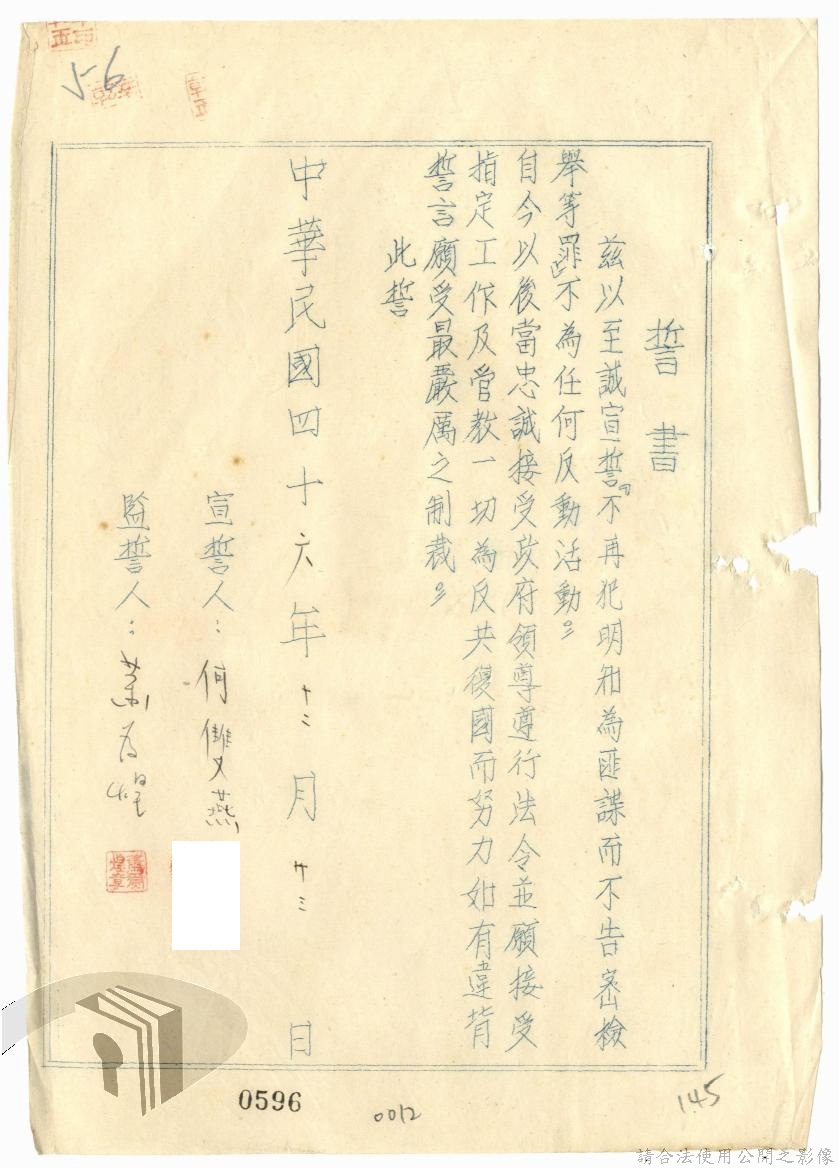 誓書
茲以至誠宣誓不再犯明知為匪諜而不告密檢
舉等罪不為任何反動活動。
自今以後當忠誠接受政府領導遵行法令並願接受
指定工作及管教一切為反共復國而努力如有違背
誓言願受最嚴厲之制裁。
此誓
中華民國四十六年十二月廿三日
宣誓人：何雙燕
監誓人：
5-6
0596
0012
145
請合法使用公開之影像